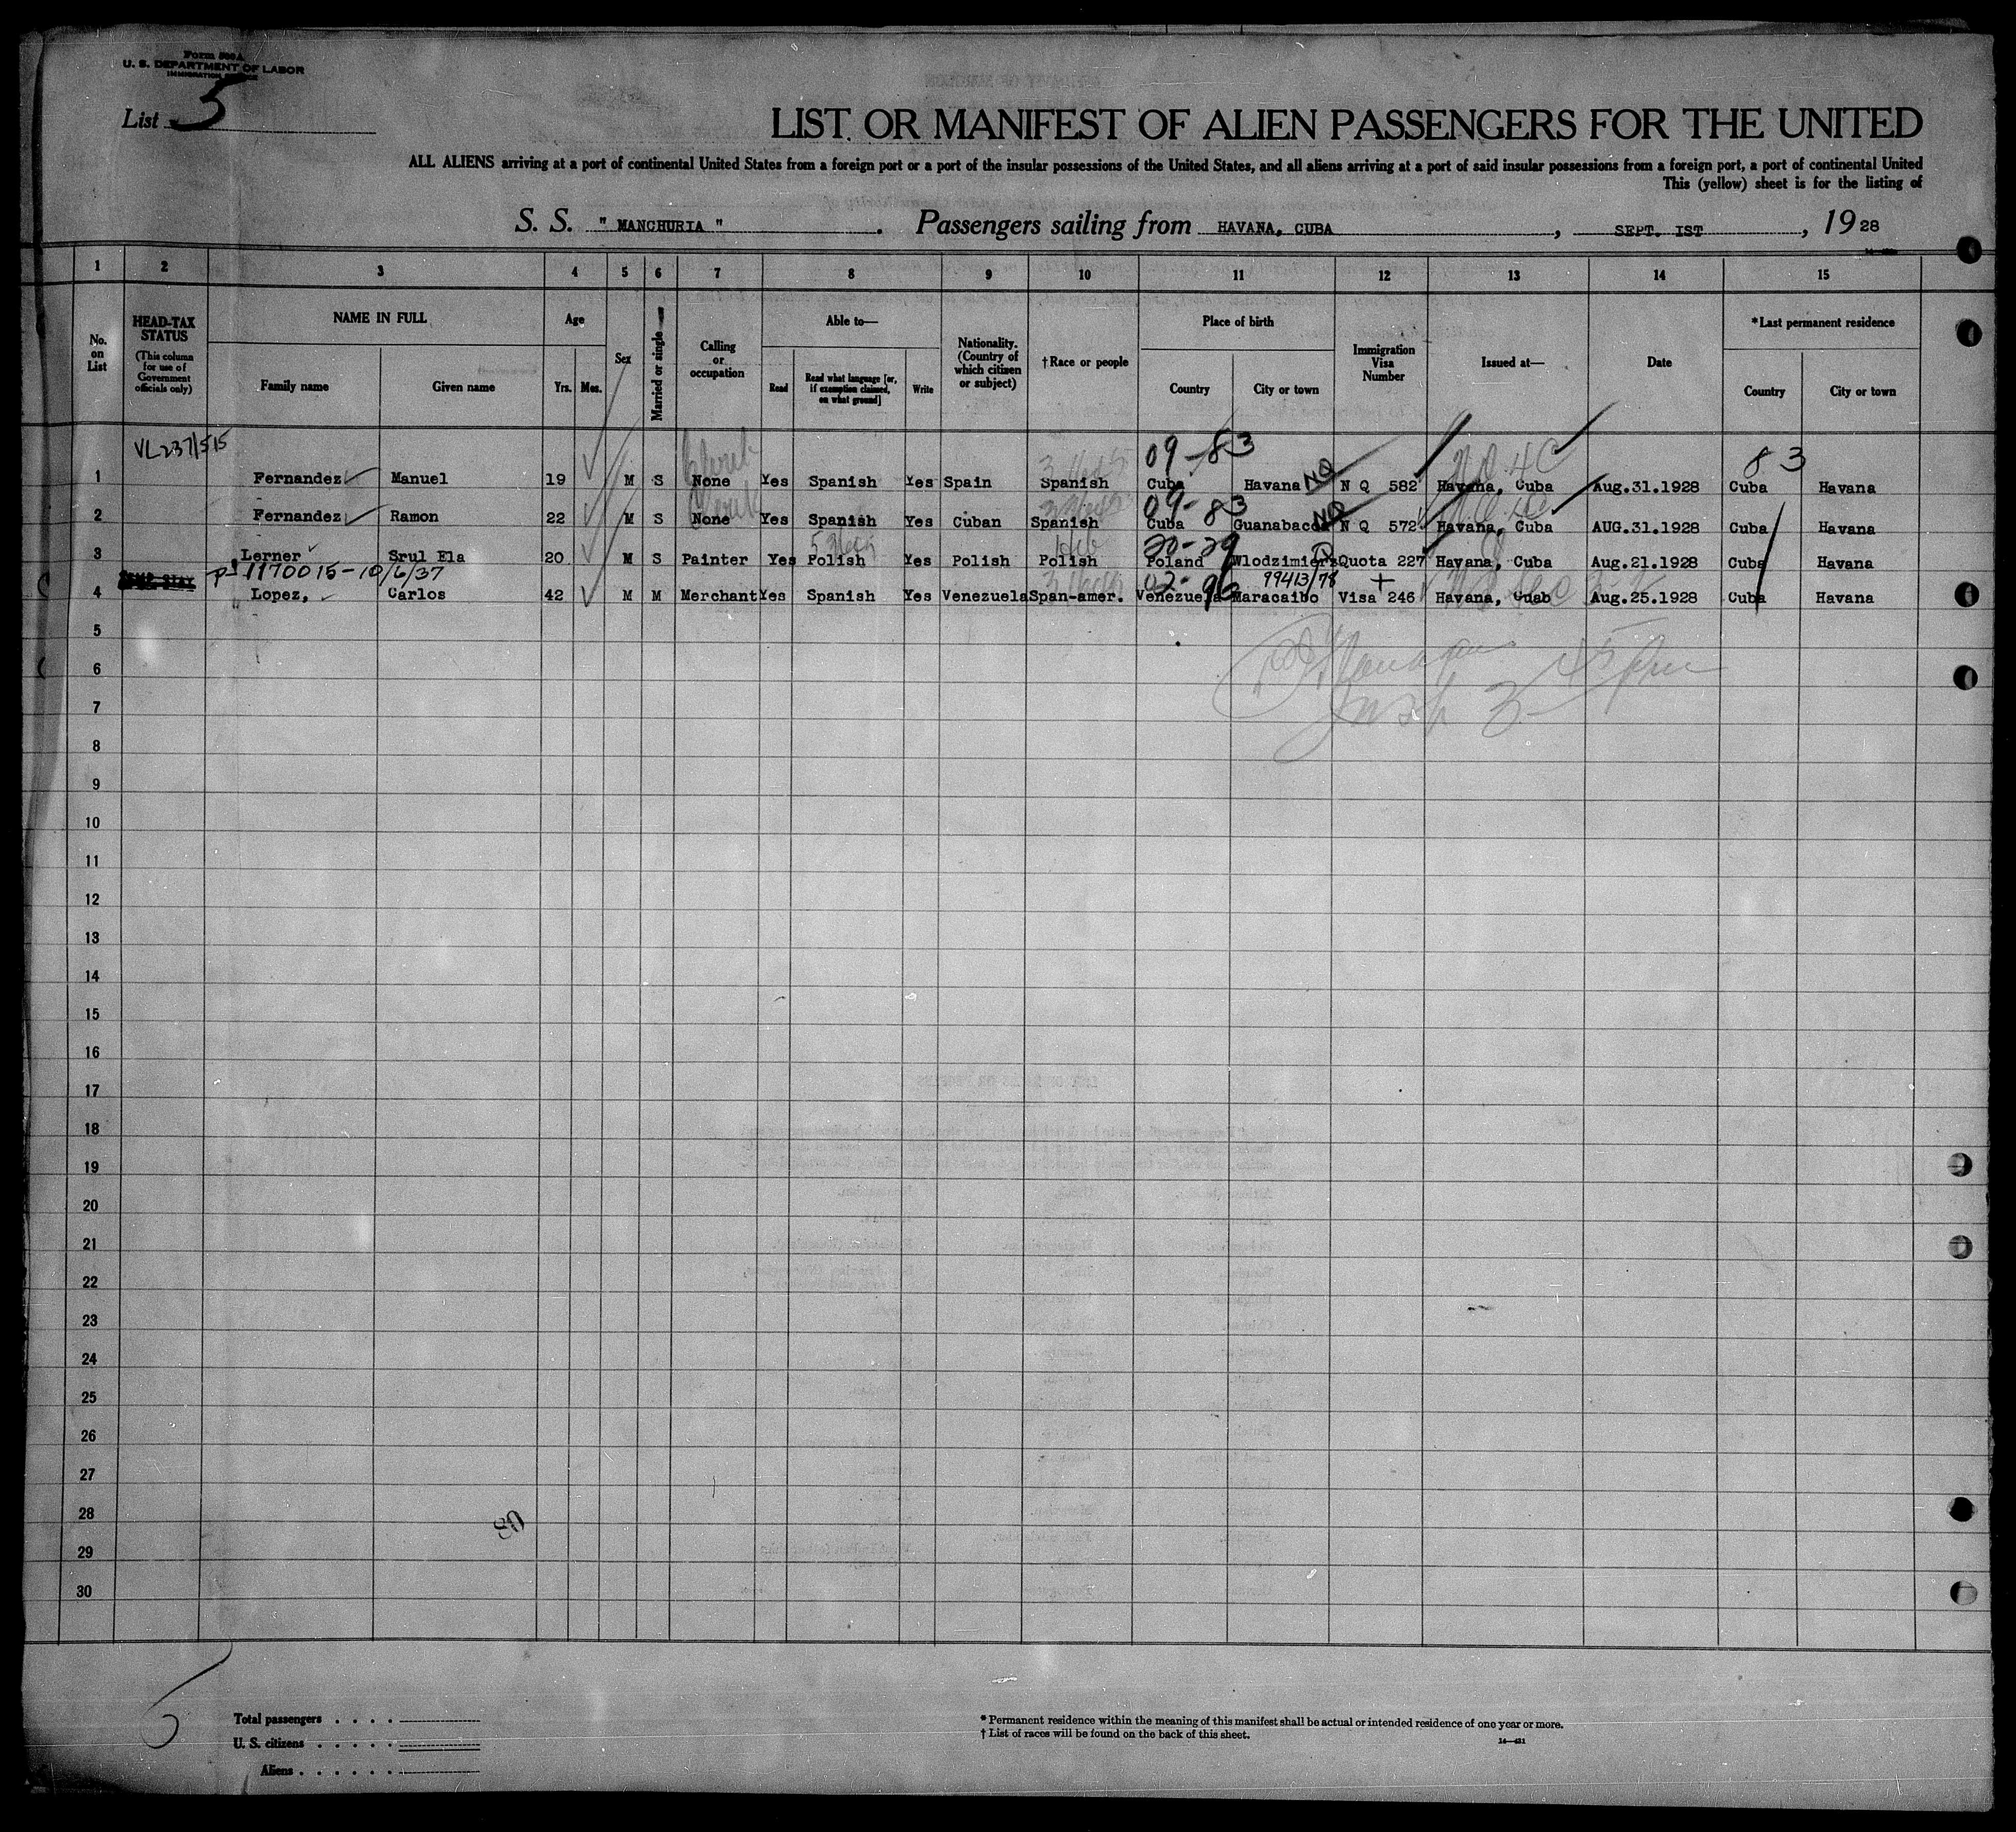 Form 500A
U. S. DEPARTMENT OF LABOR
IMMIGRATION
List 5
LIST OR MANIFEST OF ALIEN PASSENGERS FOR THE UNITED
ALL ALIENS arriving at a port of continental United States from a foreign port or a port of the insular possessions of the United States, and all aliens arriving at a port of said insular possessions from a foreign port, a port of continental United
This (yellow) sheet is for the listing of
S. S. " MANCHURIA " . Passengers sailing from HAVANA, CUBA , SEPT. IST , 1928
1 2 3 4 5 6 7 8 9 10 11 12 13 14 15
No. on List
HEAD-TAX STATUS
(This column for use of Government officials only)
NAME IN FULL
Family name Given name
Age
Yrs. Mos.
Sex
Married or single
Calling or occupation
Able to—
Read Read what language [or, if exemption claimed, on what ground] Write
Nationality. (Country of which citizen or subject)
†Race or people
Place of birth
Country City or town
Immigration Visa Number
Issued at—
Date
*Last permanent residence
Country City or town
VL237/515
Clerk 09-83 NQ 4C 83
1 Fernandez Manuel 19 M S None Yes Spanish Yes Spain Spanish Cuba Havana NQ N Q 582 Havana, Cuba Aug.31.1928 Cuba Havana
Clerk 09-83
2 Fernandez Ramon 22 M S None Yes Spanish Yes Cuban Spanish Cuba Guanabacoa NQ N Q 572 Havana, Cuba AUG.31.1928 Cuba Havana
20-29 Q
3 Lerner Srul Ela 20 M S Painter Yes Polish Yes Polish Polish Poland Wlodzimierz Quota 227 Havana, Cuba Aug.21.1928 Cuba Havana
1170015-10/6/37 02-96 99413/78
4 Lopez, Carlos 42 M M Merchant Yes Spanish Yes Venezuela Span-amer. Venezuela Maracaibo Visa 246 Havana, Cuab Aug.25.1928 Cuba Havana
5
6
7
8
9
10
11
12
13
14
15
16
17
18
19
20
21
22
23
24
25
26
27
28
80
29
30
Total passengers
U. S. citizens
Aliens
* Permanent residence within the meaning of this manifest shall be actual or intended residence of one year or more.
† List of races will be found on the back of this sheet.
14—421